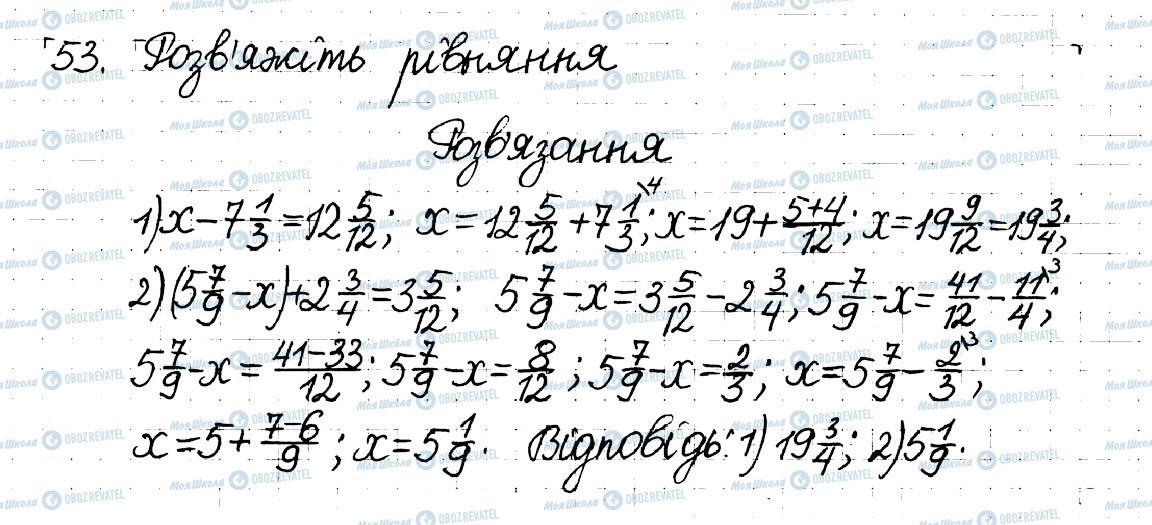 53. Розв'яжіть рівняння
Розв'язання
1) x − 7 1/3 = 12 5/12; x = 12 5/12 + 7 1/3\4; x = 19 + (5+4)/12; x = 19 9/12 = 19 3/4;
2) (5 7/9 − x) + 2 3/4 = 3 5/12; 5 7/9 − x = 3 5/12 − 2 3/4; 5 7/9 − x = 41/12 − 11/4\3;
5 7/9 − x = (41−33)/12; 5 7/9 − x = 8/12; 5 7/9 − x = 2/3; x = 5 7/9 − 2/3\3;
x = 5 + (7−6)/9; x = 5 1/9. Відповідь: 1) 19 3/4; 2) 5 1/9.